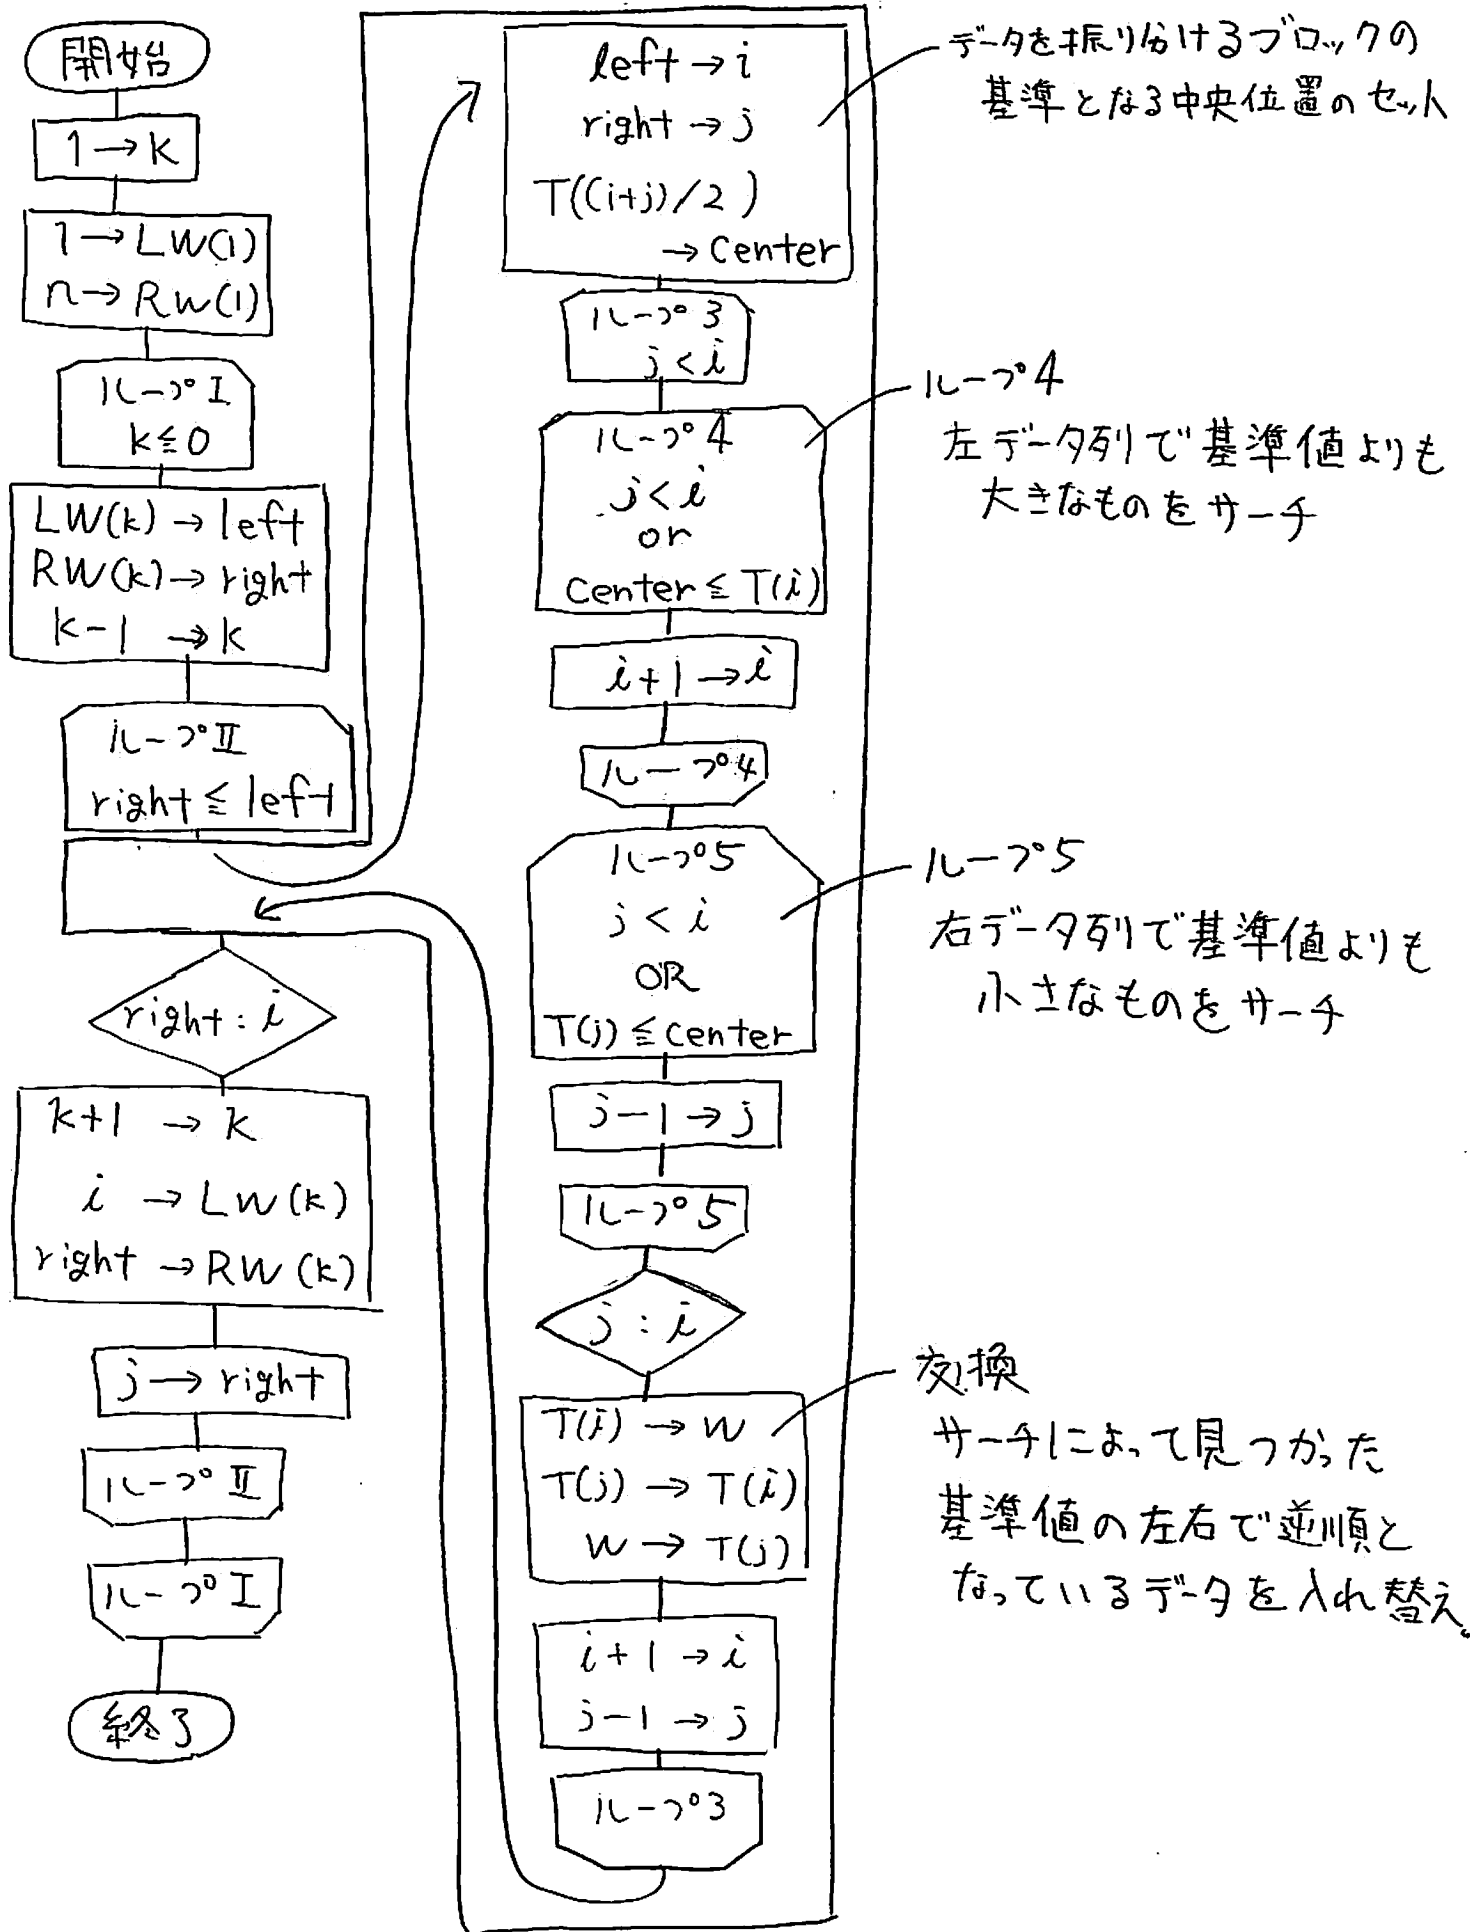 開始
1→k
1→LW(1)
n→RW(1)
ループI
k≦0
LW(k)→left
RW(k)→right
k-1 →k
ループII
right≦left
right:i
k+1 →k
i →LW(k)
right →RW(k)
j→right
ループII
ループI
終了
left→i
right→j
T((i+j)/2)
→center
ループ3
j<i
ループ4
j<i
or
center≦T(i)
i+1→i
ループ4
ループ5
j<i
OR
T(j)≦center
j-1→j
ループ5
j:i
T(i)→W
T(j)→T(i)
W→T(j)
i+1→i
j-1→j
ループ3
データを振り分けるブロックの
基準となる中央位置のセット
ループ4
左データ列で基準値よりも
大きなものをサーチ
ループ5
右データ列で基準値よりも
小さなものをサーチ
交換
サーチによって見つかった
基準値の左右で逆順と
なっているデータを入れ替え。